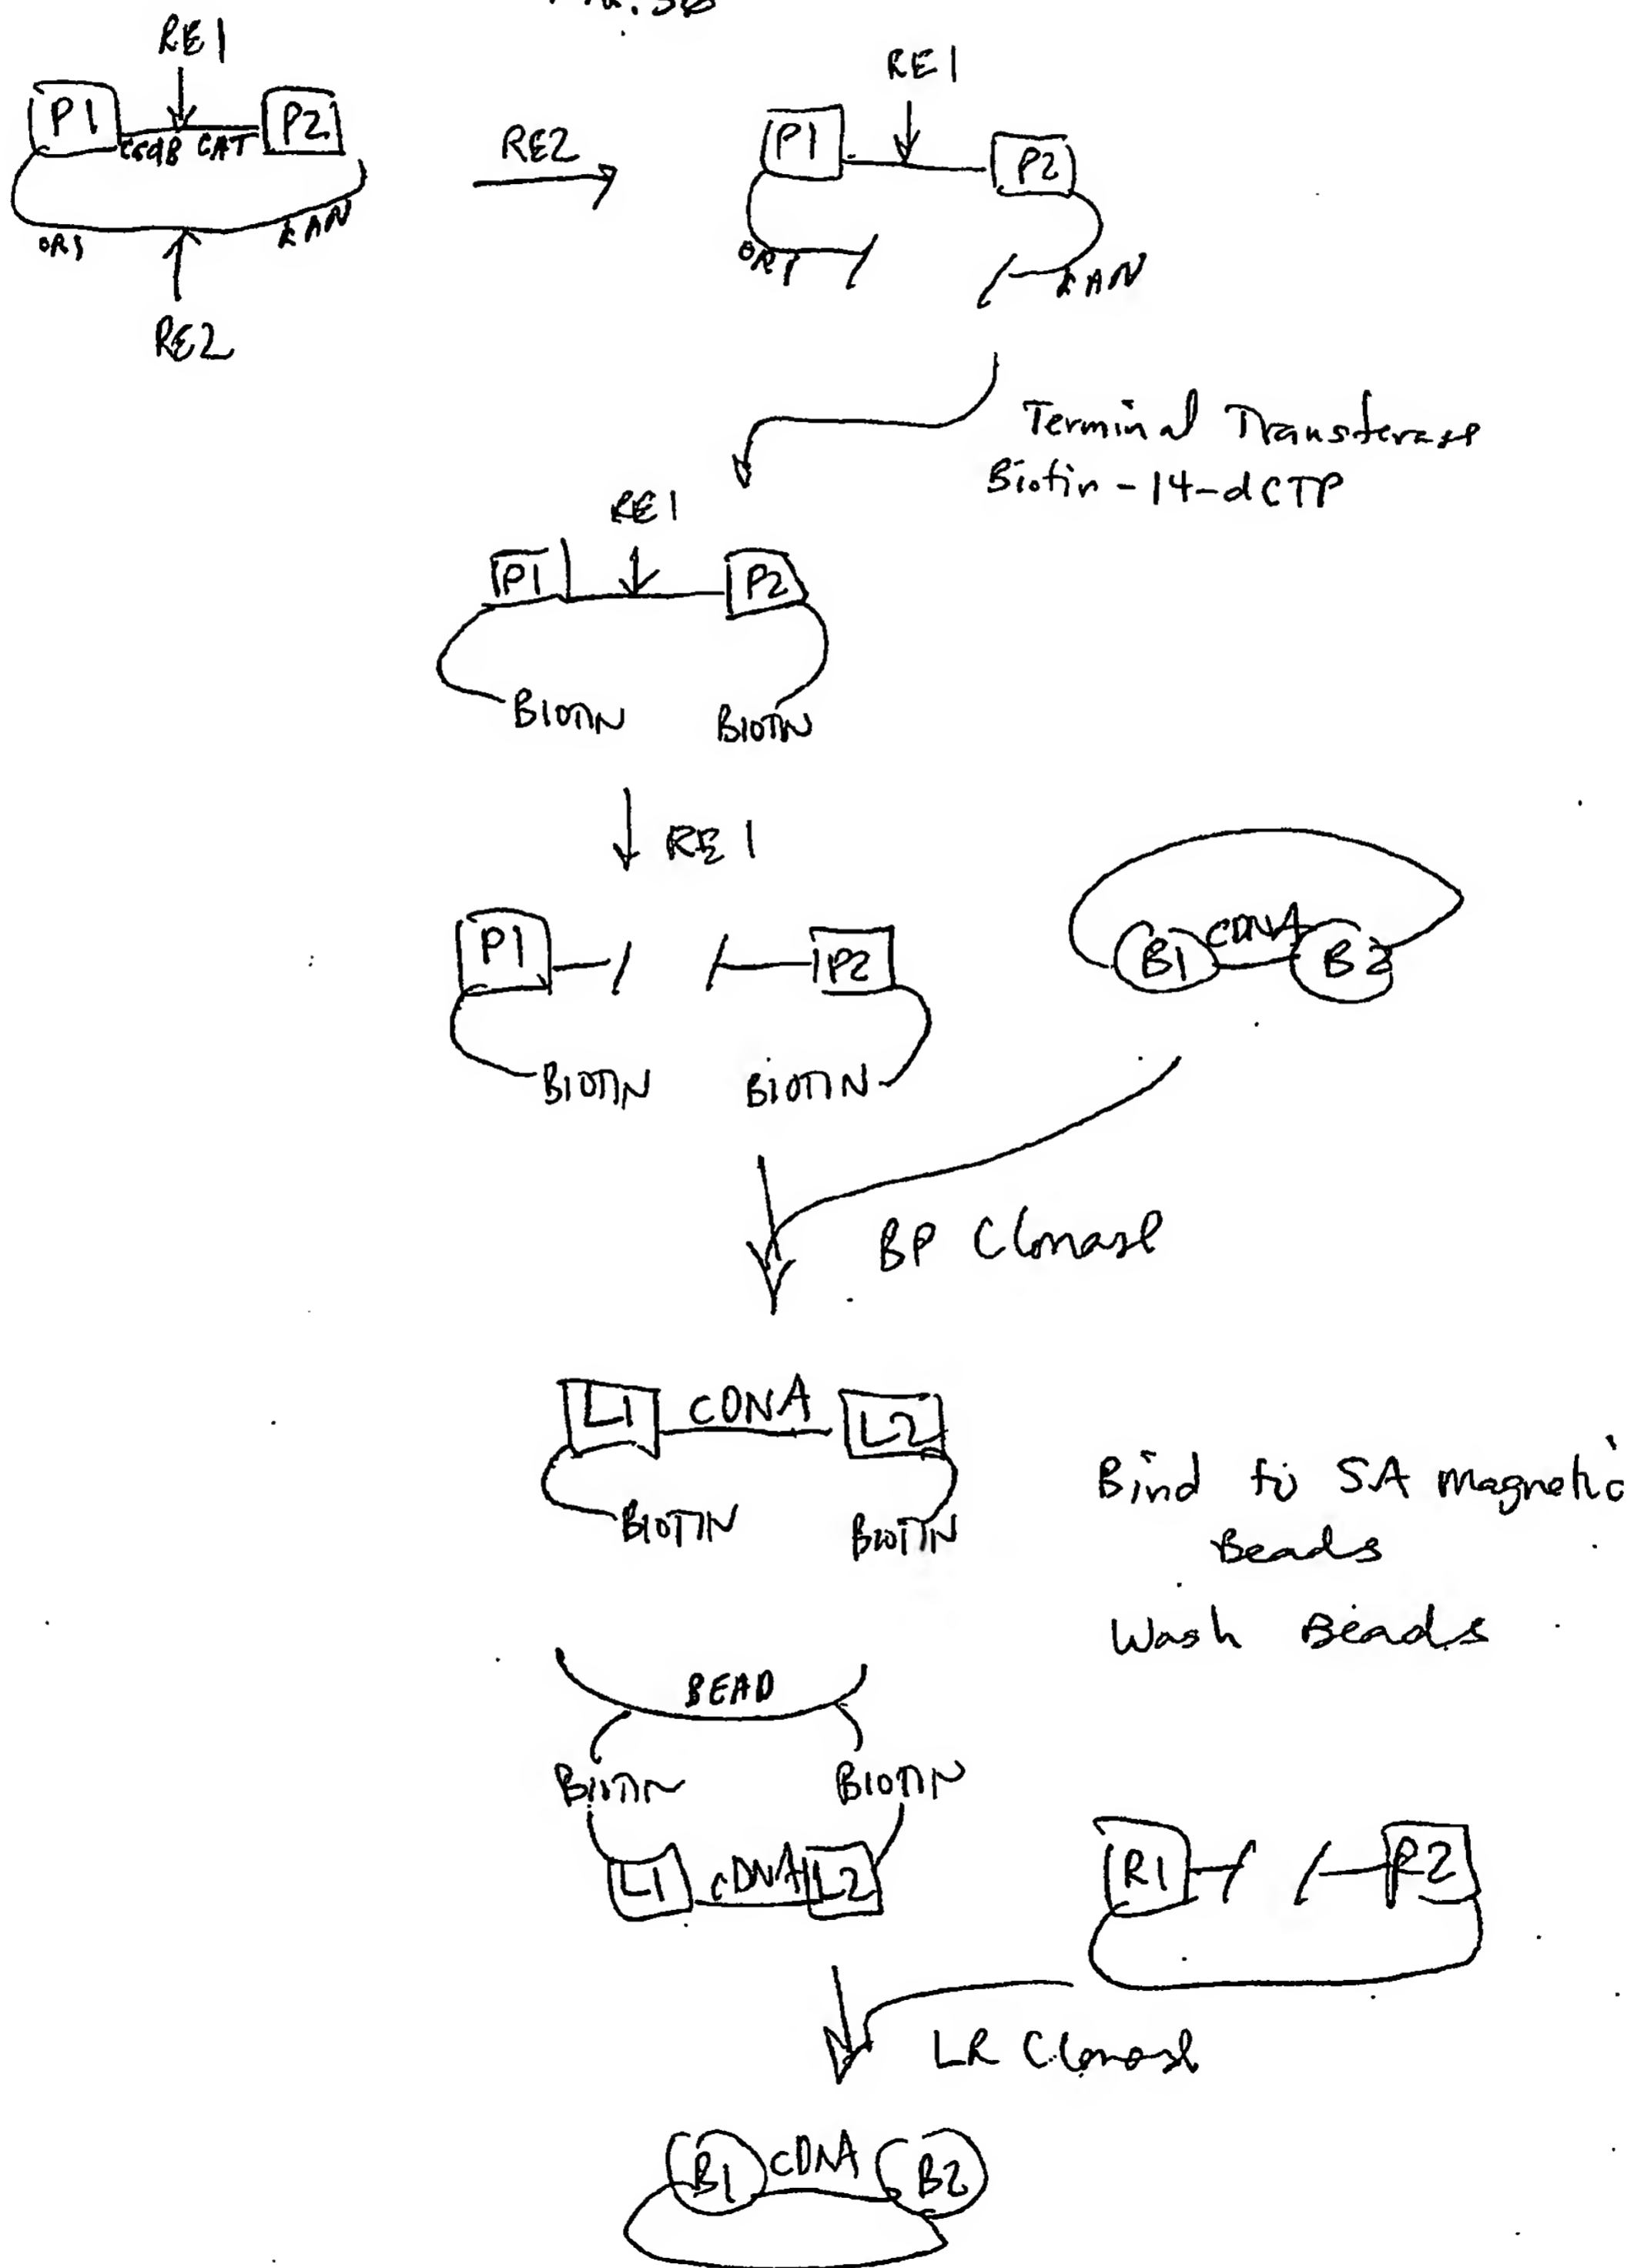 RE1
P1
ccdB CAT
P2
ORI
KAN
RE2
RE2
RE1
P1
P2
ORI
KAN
Terminal Transferase
Biotin-14-dCTP
RE1
P1
P2
BIOTIN
BIOTIN
RE1
P1
P2
BIOTIN
BIOTIN
B1
CDNA
B2
BP Clonase
L1
CDNA
L2
BIOTIN
BIOTIN
Bind to SA magnetic
Beads
Wash Beads
BEAD
BIOTIN
BIOTIN
L1
cDNA
L2
R1
R2
LR Clonase
B1
cDNA
B2